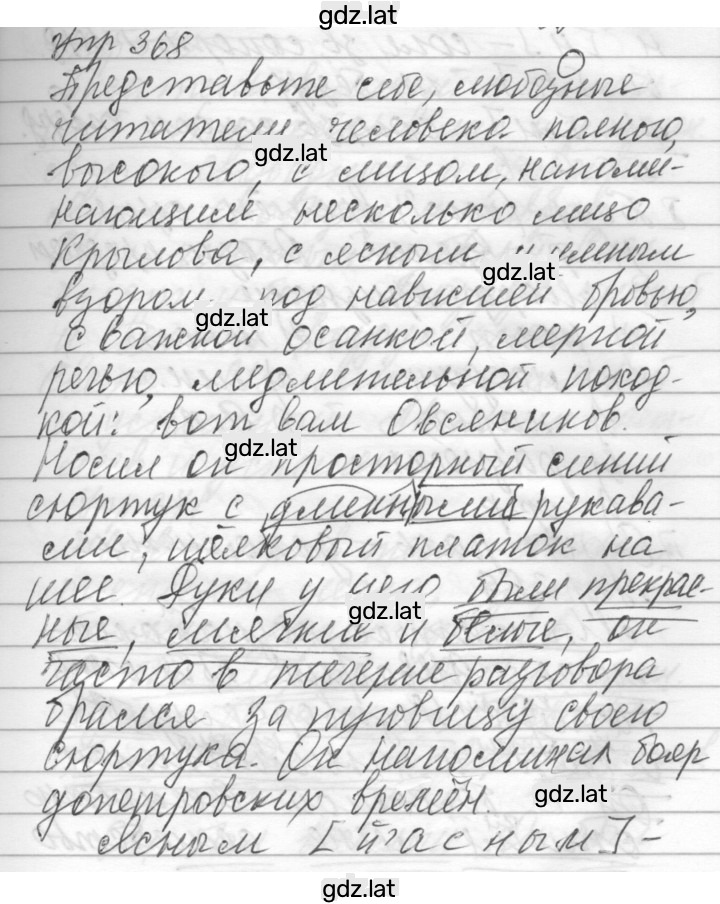 gdz.lat
Упр 368
Представьте себе, любезные
читатели человека полного,
gdz.lat
высокого, с лицом, напоми-
нающим несколько лицо
Крылова, с ясным и умным
gdz.lat
взором под нависшей бровью,
gdz.lat
с важной осанкой, мерной
речью, медлительной поход-
кой: вот вам Овсяников.
gdz.lat
Носил он просторный синий
сюртук с длинными рукава-
ми, шёлковый платок на
шее. Руки у него были прекрас-
gdz.lat
ные, мягкие и белые, он
часто в течение разговора
брался за пуговицу своего
сюртука. Он напоминал бояр
допетровских времён.
gdz.lat
ясным [й'асным]-
gdz.lat